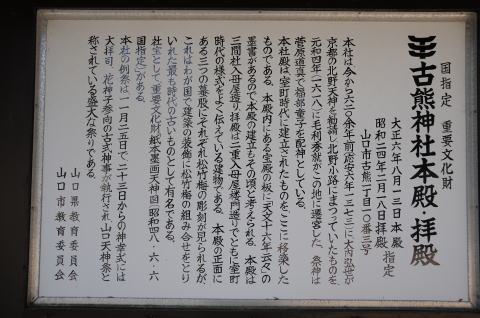 古熊神社本殿・拝殿
国指定 重要文化財
大正六年八月十三日本殿
昭和二四年二月一八日拝殿 指定
山口市古熊一丁目一〇番三号
本社は、今から六二〇余年前(応安六・一三七三)に大内弘世が
京都の北野天神を勧請し北野小路にまつっていたものを、
元和四年(一六一八)に毛利秀就がこの地に遷宮した。祭神は
菅原道真で福部童子を配神としている。
本社殿は、室町時代に建立されたものをここに移築した
ものである。本殿内にある宝殿の板に天文十六年云々の
墨書があるので本殿の建立もその頃と考えられる。本殿は
三間社入母屋造り、拝殿は二重入母屋楼門造りでともに室町
時代の様式をよく伝えている建物である。本殿の正面に
ある三つの蟇股にそれぞれ松竹梅の彫刻が見られるが
これはわが国で建築の装飾に松竹梅の組み合せをとり
いれた最も時代の古いものとして有名である。
社宝として重要文化財紙本墨画天神図(昭和四八・六・六
国指定)がある。
本社の例祭は、一一月二五日で二十三日からの神幸式には
大拝司、花神子参向の古式神事が執行され山口天神祭と
称されている盛大な祭りである。
山口県教育委員会
山口市教育委員会